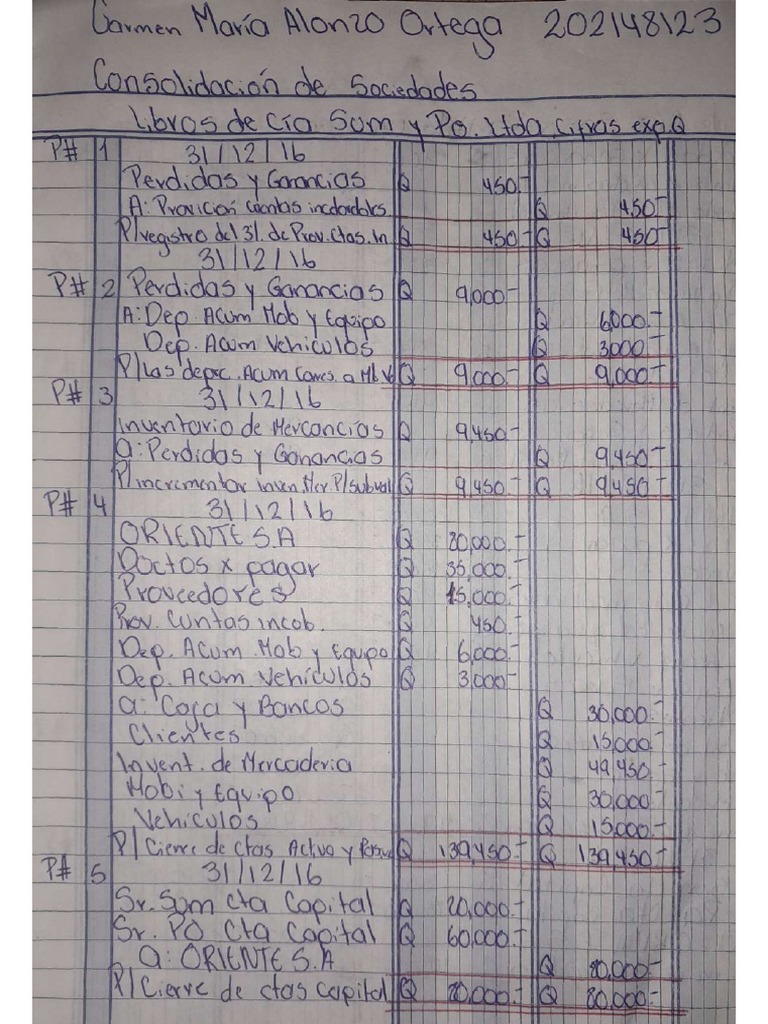 Carmen María Alonzo Ortega 202148123
Consolidación de Sociedades
Libros de Cía. Sum y Po. Ltda Cifras exp.Q
P# 1 31/12/16
Perdidas y Ganancias Q 450.-
A: Provición cuentas incobrables Q 450-
P/registro del 3%. de Prov. Ctas. In Q 450- Q 450-
31/12/16
P# 2 Perdidas y Ganancias Q 9,000-
A: Dep Acum Mob y Equipo Q 6000.-
Dep. Acum Vehiculos Q 3000-
P/Las deprc. Acum Corres. a Mb V Q 9,000- Q 9,000-
P# 3 31/12/16
Inventario de Mercancias Q 9,450-
a: Perdidas y Ganancias Q 9,450-
P/incrementar inven. Mer P/subval Q 9,450- Q 9,450-
P# 4 31/12/16
ORIENTE S.A Q 80,000.-
Doctos x pagar Q 35,000.-
Proveedores Q 15,000.-
Prov. Cuntas incob. Q 450.-
Dep. Acum. Mob y Equipo Q 6,000.-
Dep. Acum Vehículos Q 3,000-
a: Caja y Bancos Q 30,000.-
Clientes Q 15,000-
Invent. de Mercaderia Q 49,450-
Mobi y Equipo Q 30,000-
Vehiculos Q 15,000-
P/ Cierre de ctas Activo y Pasivo Q 139,450- Q 139,450-
P# 5 31/12/16
Sr. Sum cta Capital Q 20,000.-
Sr. PO Cta Capital Q 60,000.-
a: ORIENTE S.A Q 80,000.-
P/ Cierre de ctas Capital Q 80,000.- Q 80,000.-